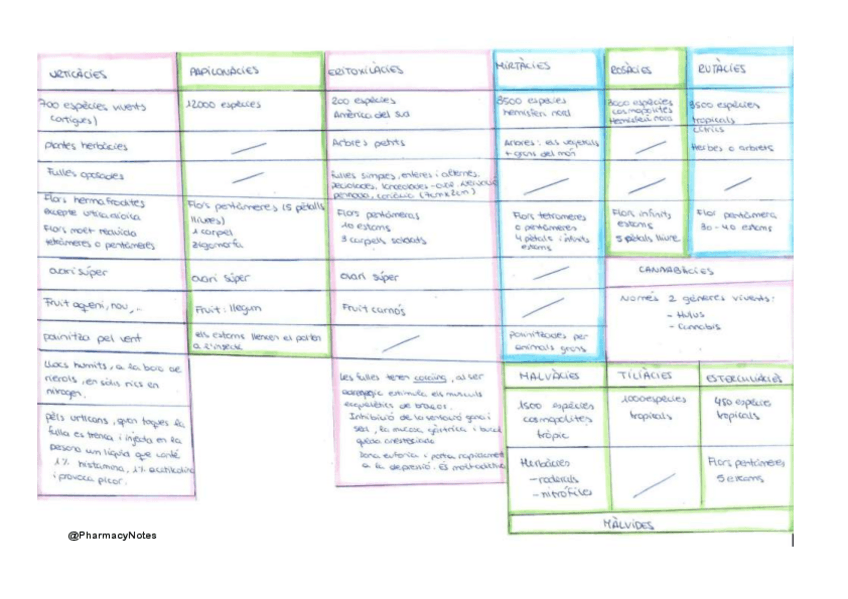 URTICÀCIES
700 espècies vivents
(ortigues)
plantes herbàcies
Fulles oposades
Flors hermafrodites
excepte urtica dioica
Flors molt reduïdes
tetràmeres o pentàmeres
ovari súper
Fruit aqueni, nou, ..
pol·linitza pel vent
Llocs humits, a la bora de
rierols, en sòls rics en
nitrogen.
pèls urticans, quan toques la
fulla es trenca i injecta en la
persona un líquid que conté
1% histamina, 1% acetilcolina
i provoca picor.
PAPILONÀCIES
12000 espècies
Flors pentàmeres (5 pètals
lliures)
1 carpel
zigomorfa
ovari súper
Fruit: llegum
els estams llencen el pol·len
a l'insecte
ERITOXILÀCIES
200 espècies
Amèrica del sud
Arbres petits
Fulles simples, enteres i alternes.
Flors pentàmeras
10 estams
3 carpels soldats
ovari súper
Fruit carnós
Les fulles tenen cocaïna, al ser
estimula els músculs
esquelètics de braços.
Inhibició de la sensació gana i
set, la mucosa gàstrica i bucal
queda anestesiada
Dona eufòria i porta ràpidament
a la depressió.
MIRTÀCIES
3500 espècies
hemisferi nord
Arbres: els vegetals
+ grans del món
Flors tetràmeres
o pentàmeres
4 pètals i infinits
estams
pol·linitzades per
animals grans
ROSÀCIES
3000 espècies
cosmopolites
Hemisferi nord
Flors infinits
estams
5 pètals lliures
RUTÀCIES
3500 espècies
tropicals
cítrics
Herbes o arbrets
Flor pentàmera
30 - 40 estams
CANNABÀCIES
Només 2 gèneres vivents:
- Cannabis
MALVÀCIES
1500 espècies
cosmopolites
tròpic
Herbàcies
- ruderals
- nitròfiles
TILIÀCIES
1000 espècies
tropicals
ESTERCULIÀCIES
450 espècies
tropicals
Flors pentàmeres
5 estams
MÀLVIDES
@PharmacyNotes